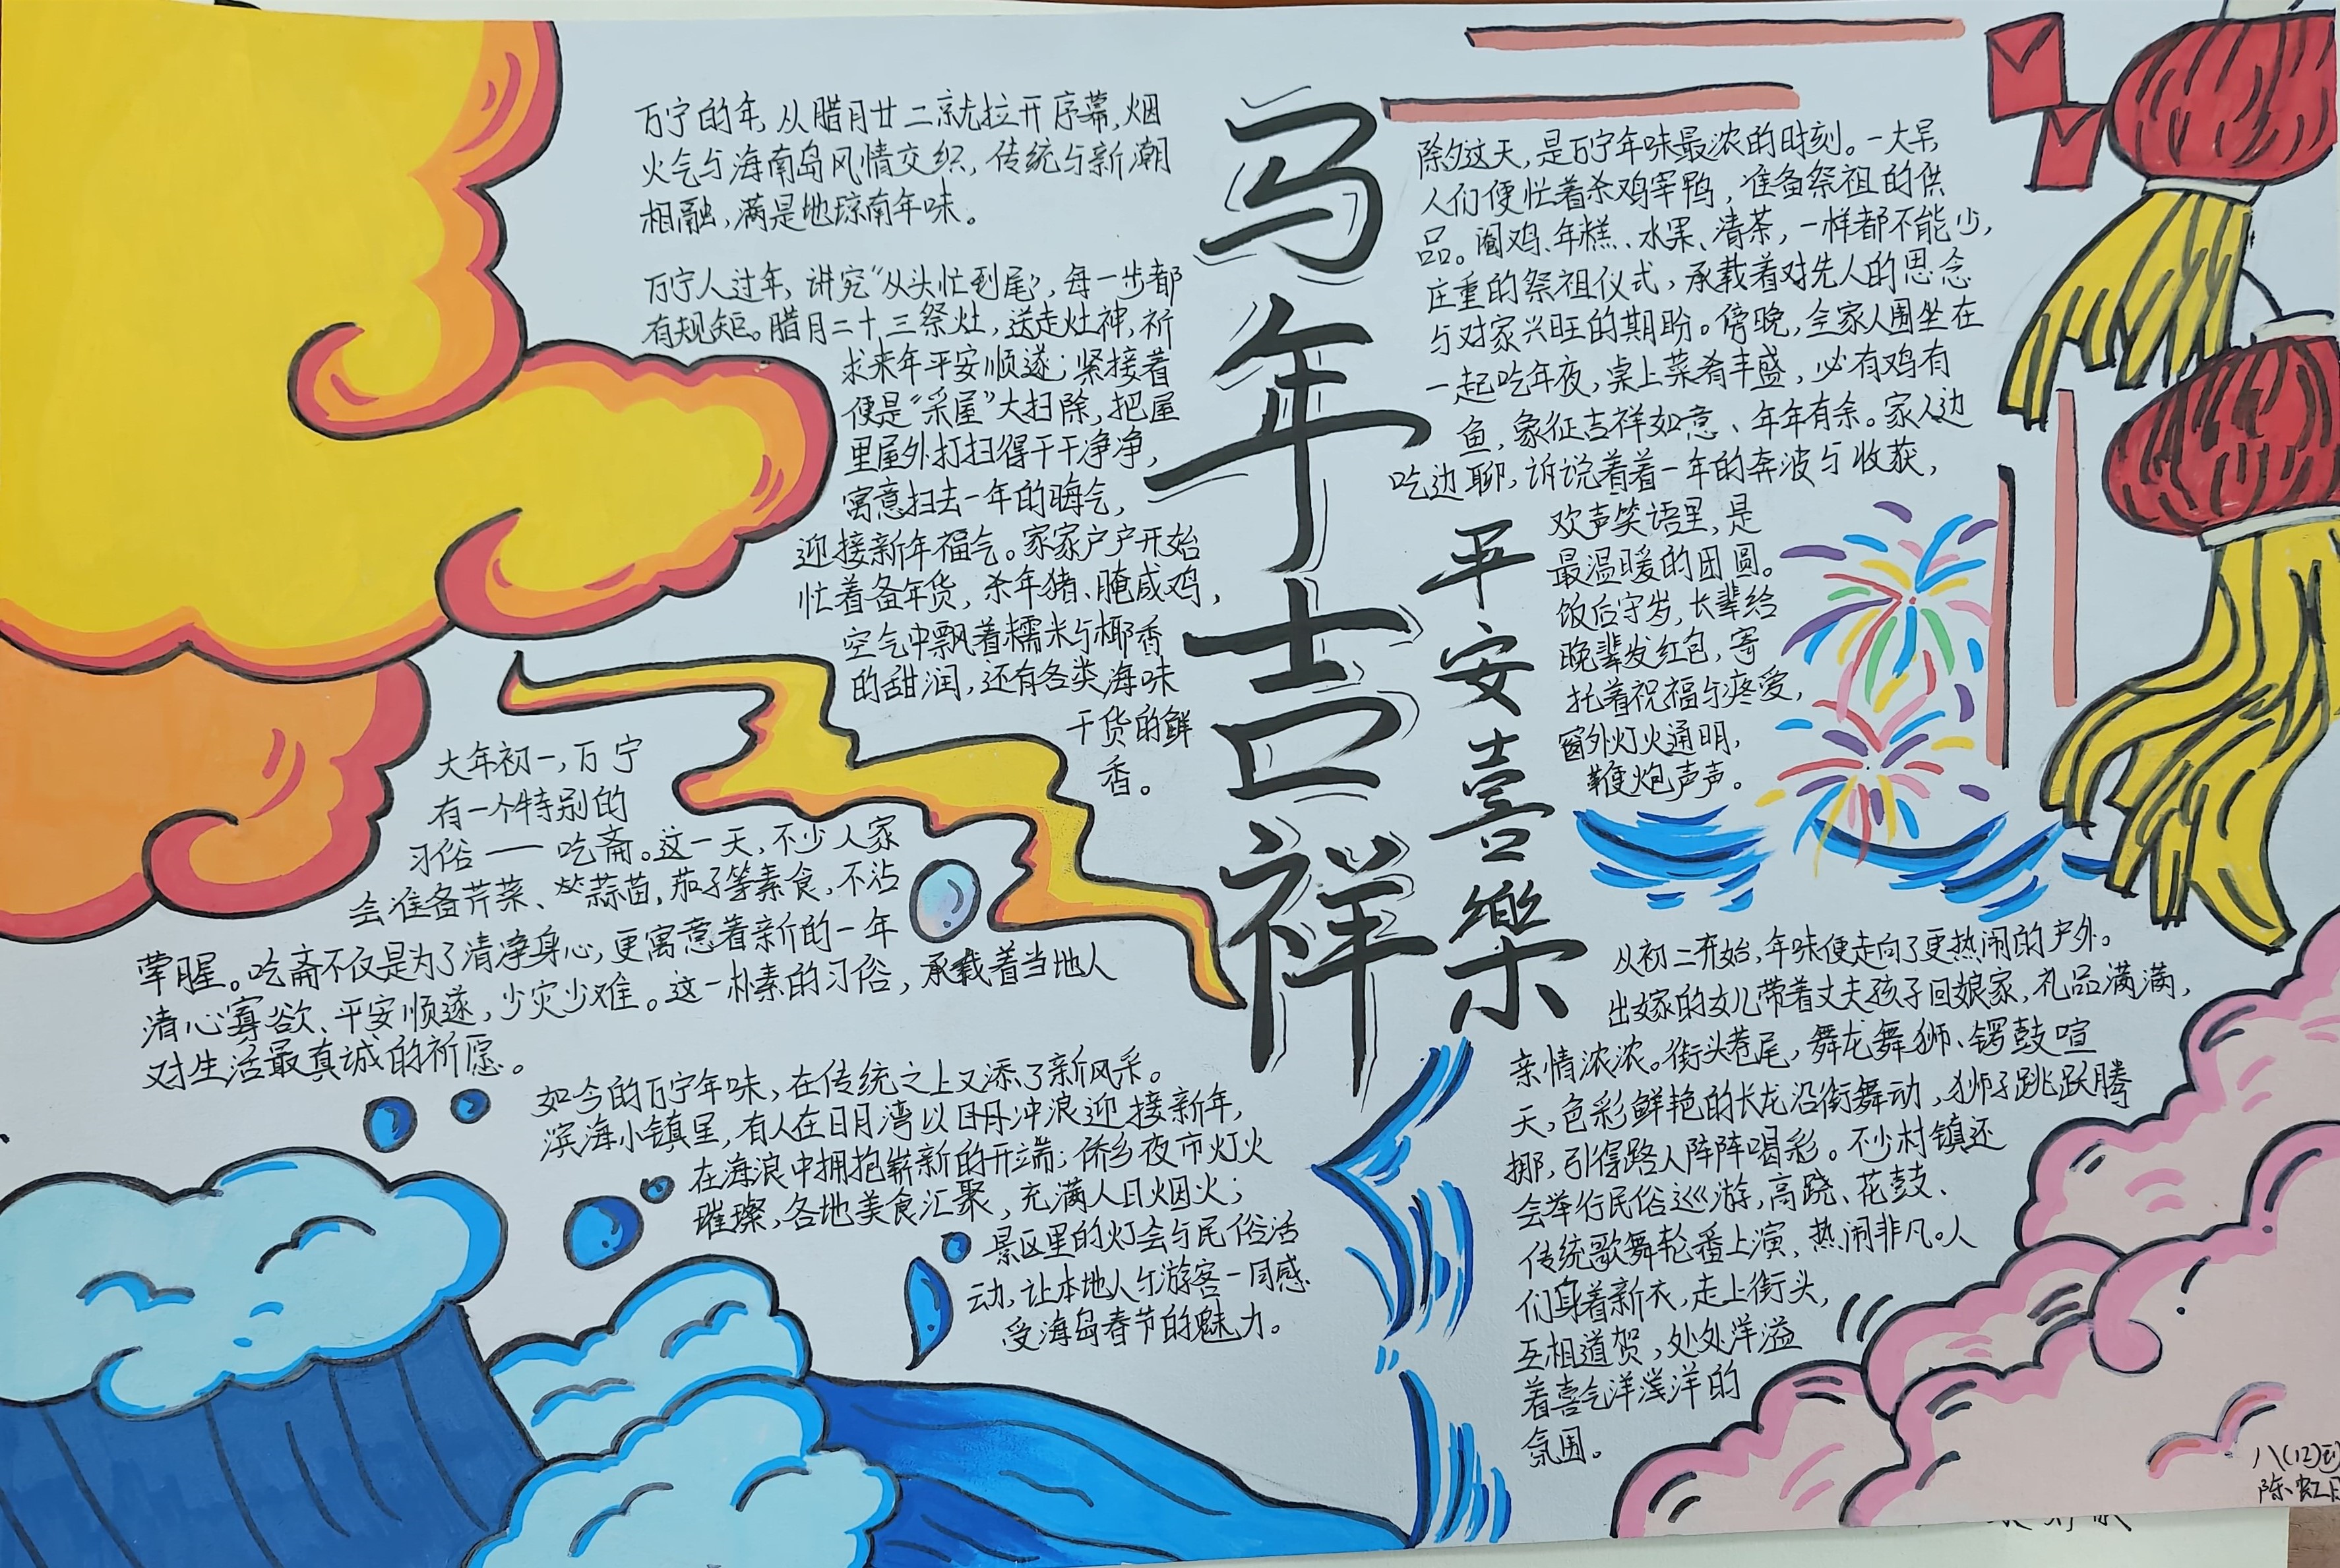 万宁的年,从腊月廿二就拉开序幕,烟
火气与海南岛风情交织,传统与新潮
相融,满是地琼南年味。
万宁人过年,讲究“从头忙到尾”,每一步都
有规矩。腊月二十三祭灶,送走灶神,祈
求来年平安顺遂;紧接着
便是“采屋”大扫除,把屋
里屋外打扫得干干净净,
寓意扫去一年的晦气,
迎接新年福气。家家户户开始
忙着备年货,杀年猪、腌咸鸡,
空气中飘着糯米与椰香
的甜润,还有各类海味
干货的鲜
香。
大年初一,万宁
有一个特别的
习俗——吃斋。这一天,不少人家
会准备芹菜、蒜苗,茄子等素食,不沾
荤腥。吃斋不仅是为了清净身心,更寓意着新的一年
清心寡欲、平安顺遂,少灾少难。这一朴素的习俗,承载着当地人
对生活最真诚的祈愿。
如今的万宁年味,在传统之上又添了新风采。
滨海小镇里,有人在日月湾以日月冲浪迎接新年,
在海浪中拥抱崭新的开端;侨乡夜市灯火
璀璨,各地美食汇聚,充满人日烟火;
景区里的灯会与民俗活
动,让本地人与游客一同感
受海岛春节的魅力。
马年吉祥
平安喜樂
除夕这天,是万宁年味最浓的时刻。一大早
人们便忙着杀鸡宰鸭,准备祭祖的供
品。阉鸡、年糕、水果、清茶,一样都不能少,
庄重的祭祖仪式,承载着对先人的思念
与对家兴旺的期盼。傍晚,全家人围坐在
一起吃年夜,桌上菜肴丰盛,必有鸡有
鱼,象征吉祥如意、年年有余。家人边
吃边聊,诉说着着一年的奔波与收获,
欢声笑语里,是
最温暖的团圆。
饭后守岁,长辈给
晚辈发红包,寄
托着祝福与疼爱,
窗外灯火通明,
鞭炮声声。
从初二开始,年味便走向了更热闹的户外。
出嫁的女儿带着丈夫孩子回娘家,礼品满满,
亲情浓浓。街头巷尾,舞龙舞狮、锣鼓喧
天,色彩鲜艳的长龙沿街舞动,狮子跳跃腾
挪,引得路人阵阵喝彩。不少村镇还
会举行民俗巡游,高跷、花鼓、
传统歌舞轮番上演,热闹非凡。人
们身着新衣,走上街头,
互相道贺,处处洋溢
着喜气洋洋的
氛围。
八(12)
陈虹